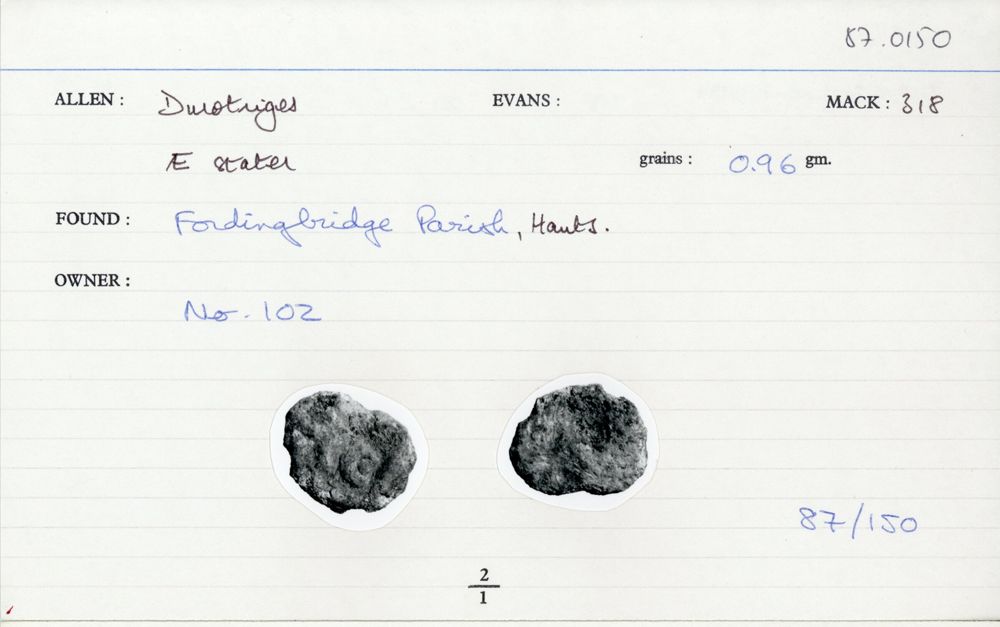 87.0150
ALLEN : Durotriges EVANS : MACK : 318
Æ stater grains : 0.96 gm.
FOUND : Fordingbridge Parish, Hants.
OWNER :
No. 102
87/150
2
1